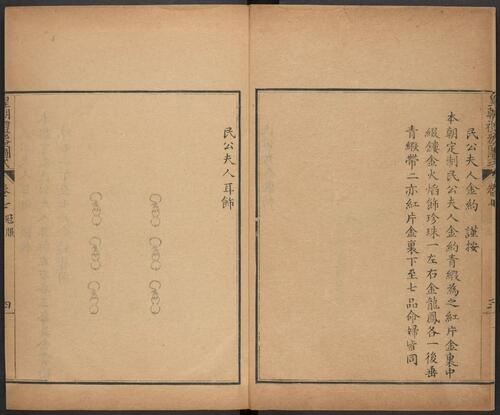 民公夫人金約　謹按
本朝定制民公夫人金約青緞為之紅片金裏中
綴鏤金火焰飾珍珠一左右金龍鳳各一後垂
青緞帶二亦紅片金裏下至七品命婦皆同
三
民公夫人耳飾
皇朝禮器圖式
卷七
冠服
四